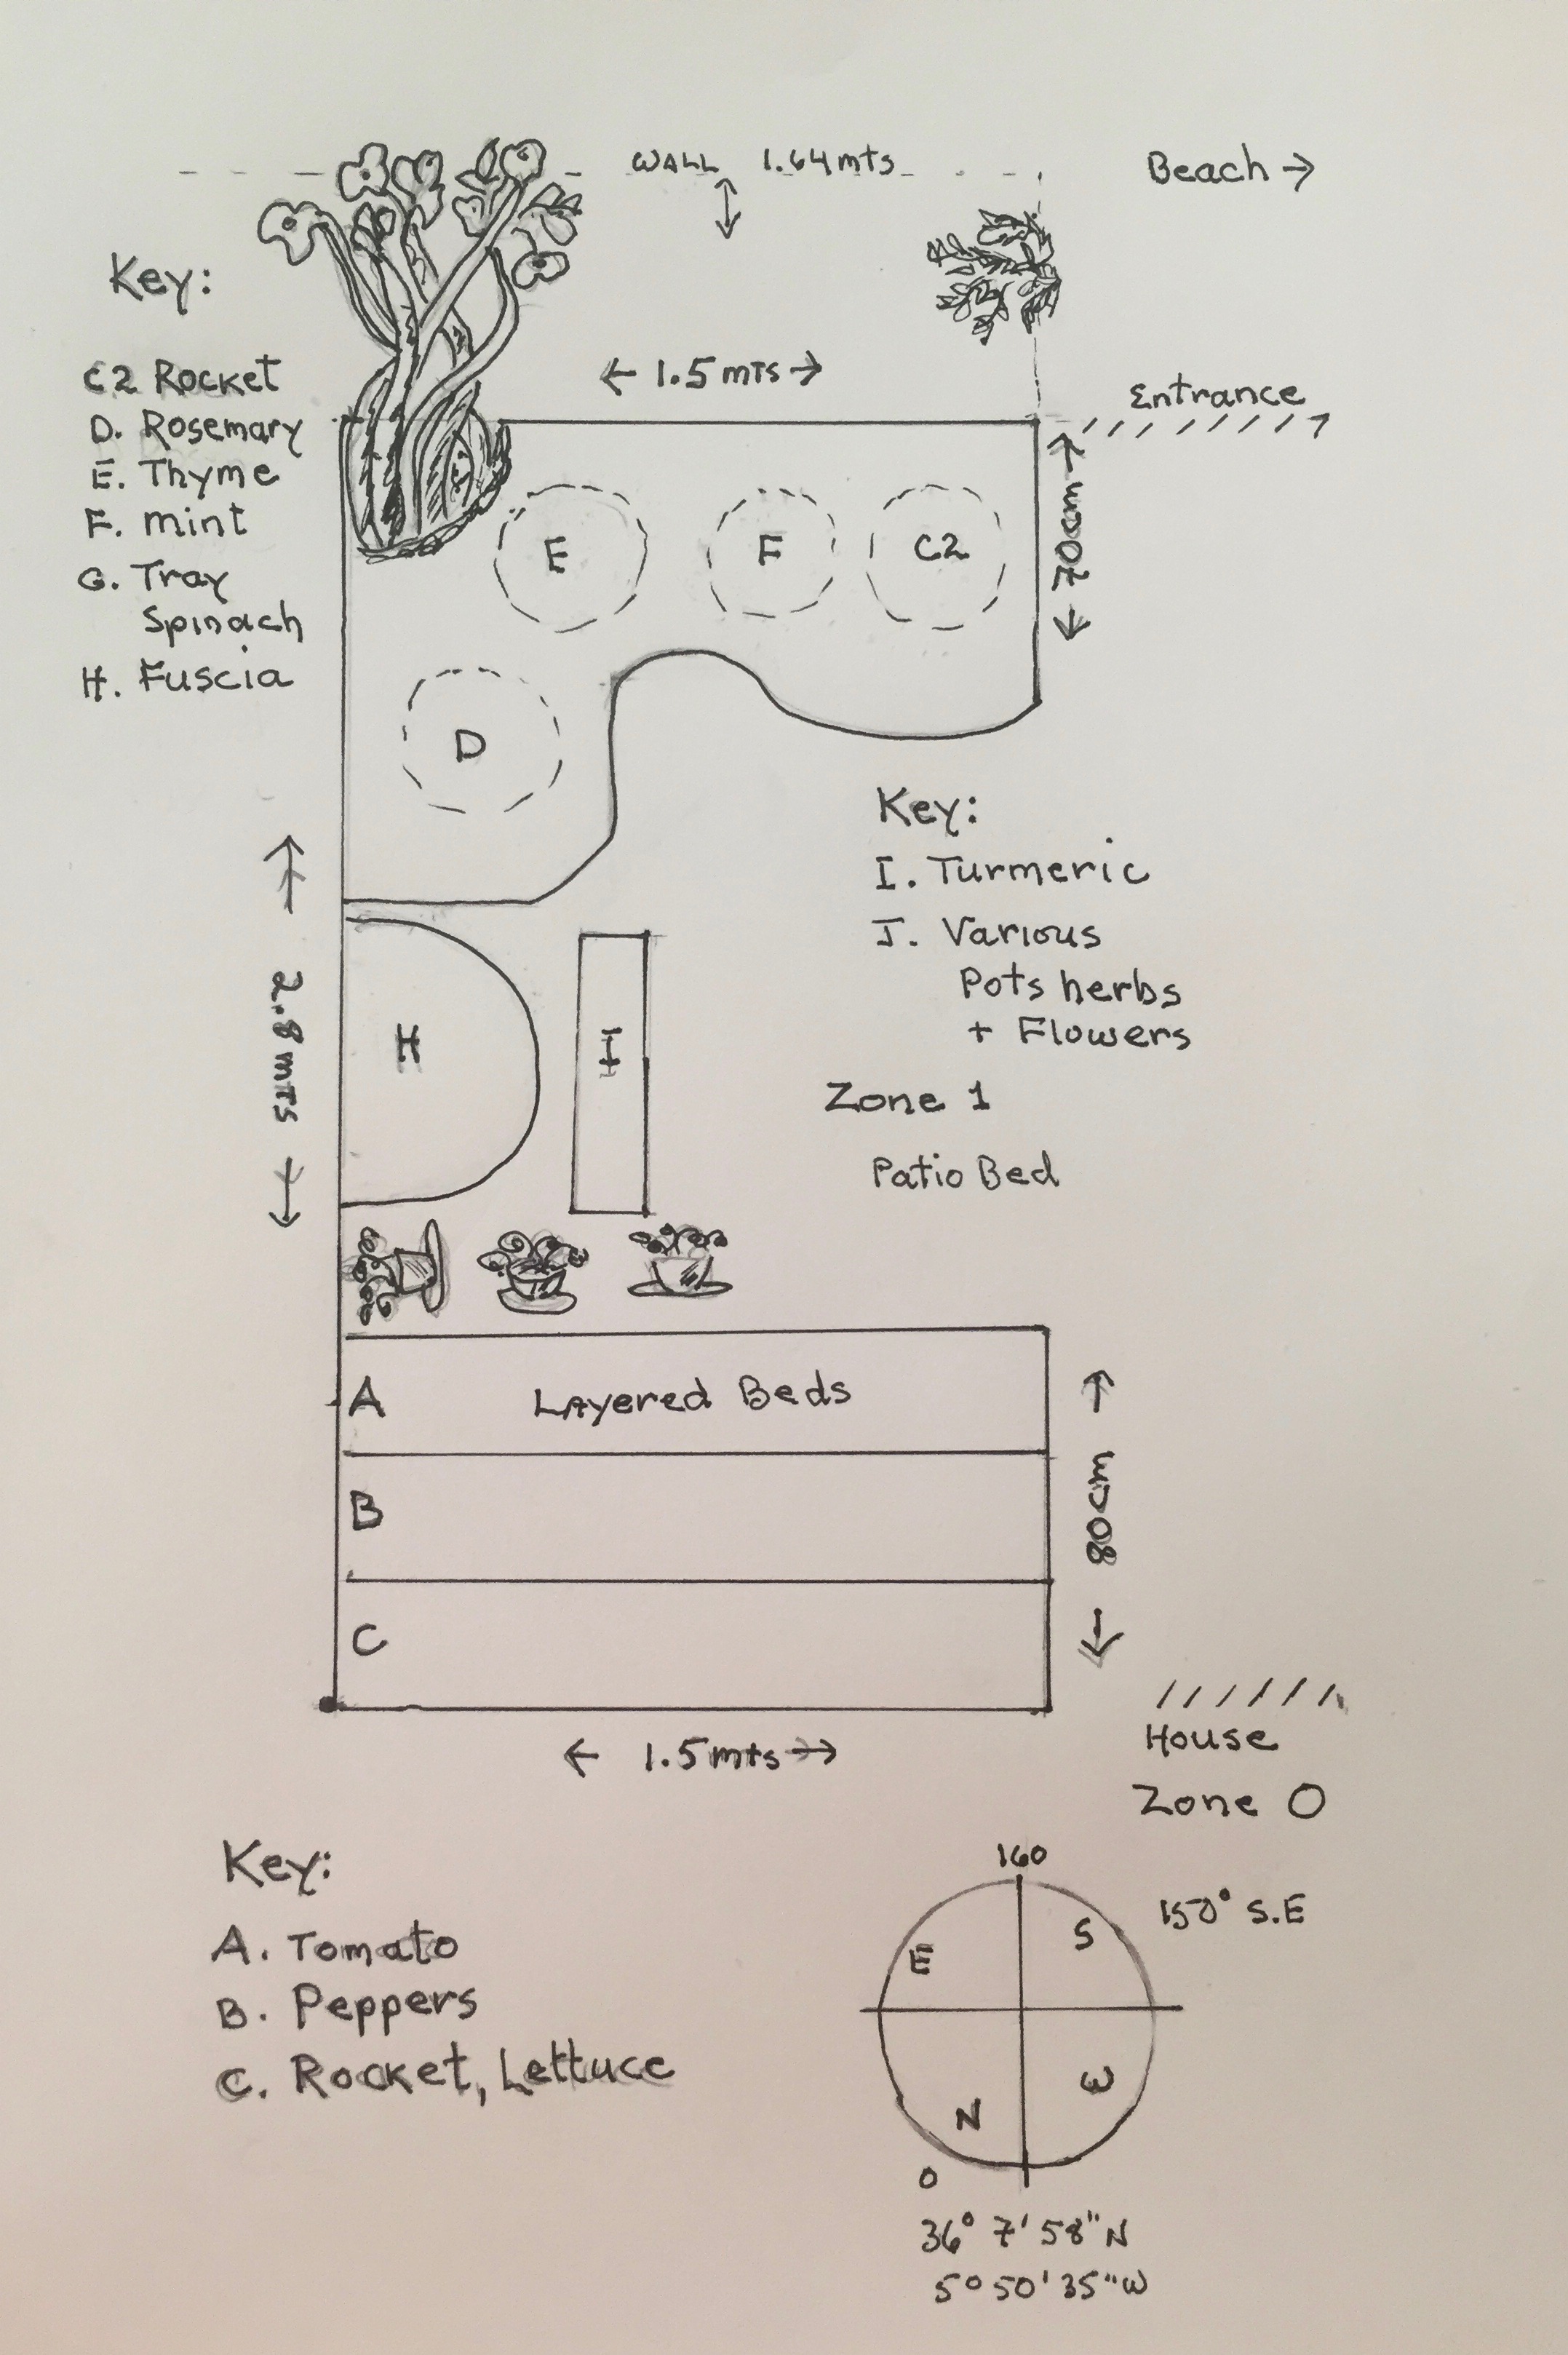 WALL 1.64mts
Beach →
Key:
C2 Rocket
D. Rosemary
E. Thyme
F. mint
G. Tray
Spinach
H. Fuscia
← 1.5 mts →
Entrance
70cm
E
F
C2
D
Key:
I. Turmeric
J. Various
Pots herbs
+ Flowers
2.8 mts
H
I
Zone 1
Patio Bed
A
Layered Beds
B
C
80cm
← 1.5mts →
House
Zone 0
Key:
A. Tomato
B. Peppers
C. Rocket, Lettuce
160
150° S.E
E
S
N
W
0
36° 7' 58" N
5° 50' 35" W